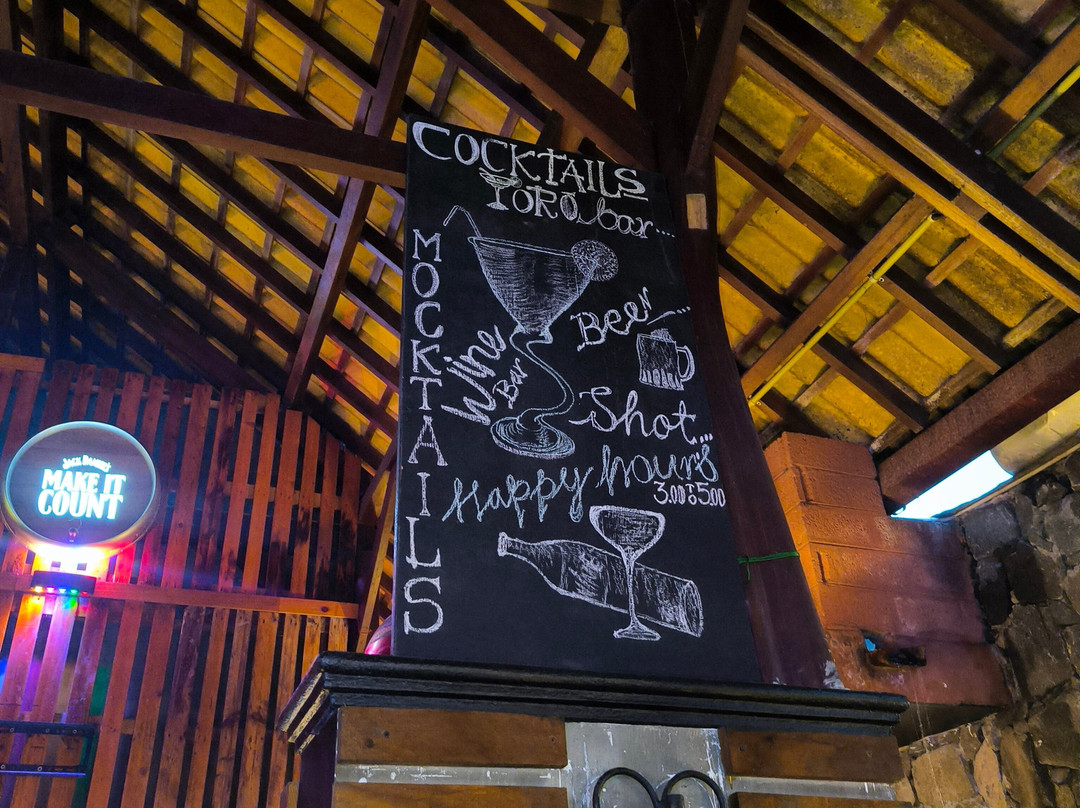 COCKTAILS
TORO bar...
MOCKTAILS
Wine
Bar
Beer...
Shot...
Happy hours
3.00 TO 5.00
JACK DANIEL'S
MAKE IT
COUNT